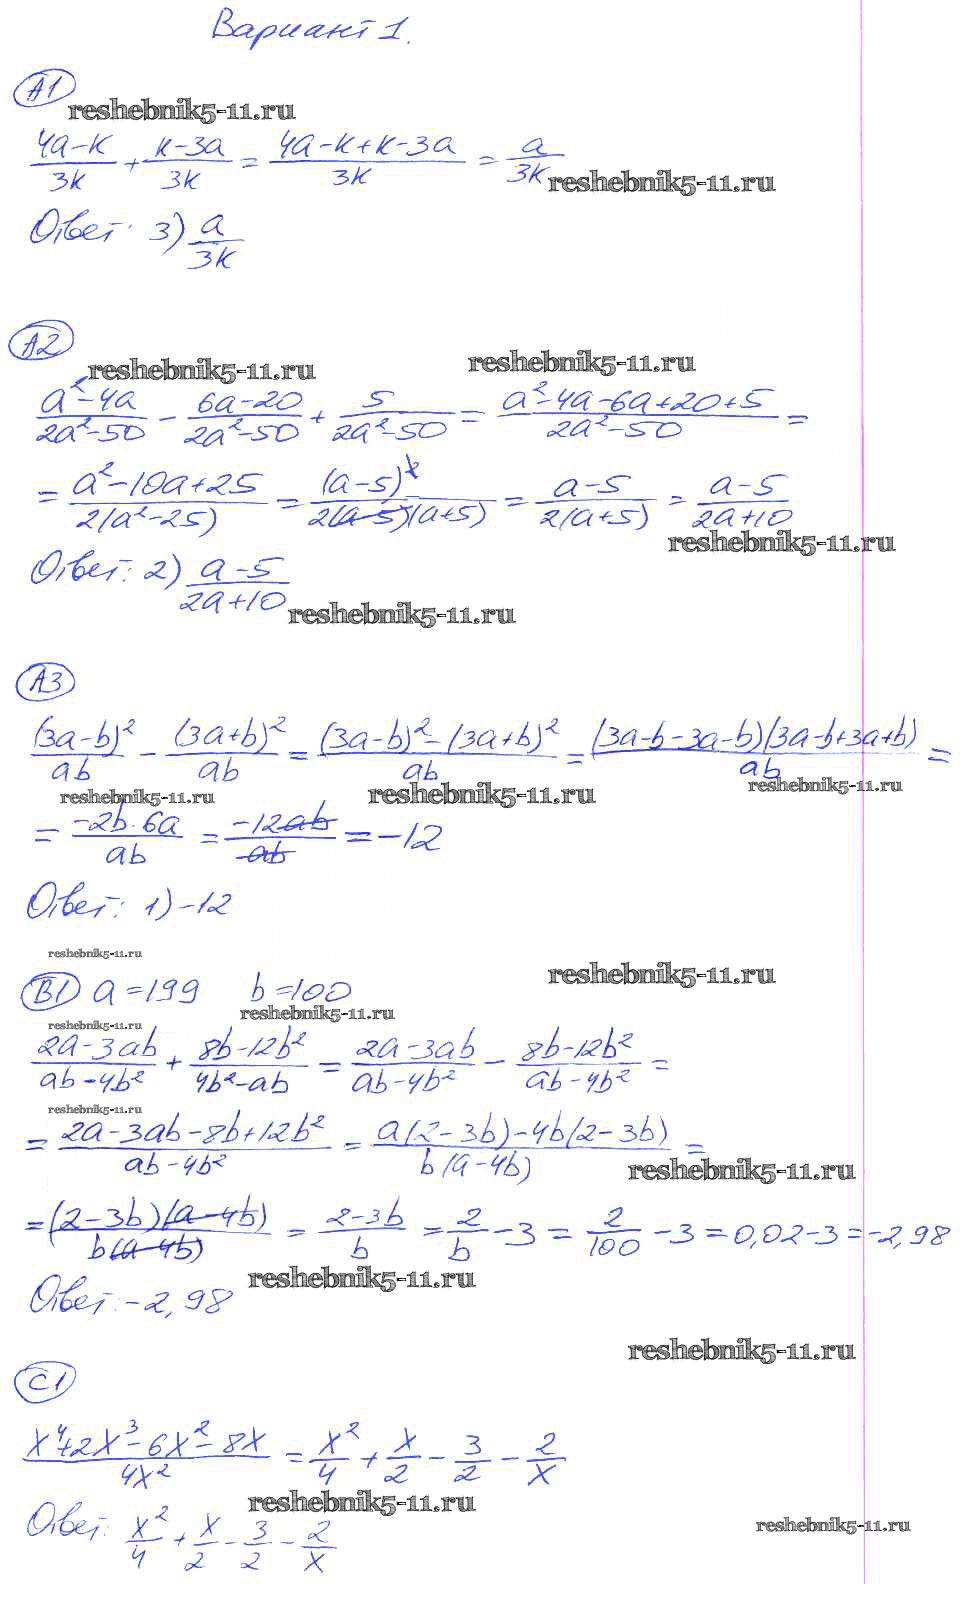 Вариант 1.
А1
reshebnik5-11.ru
(4a-k)/3k + (k-3a)/3k = (4a-k+k-3a)/3k = a/3k
reshebnik5-11.ru
Ответ: 3) a/3k
А2
reshebnik5-11.ru reshebnik5-11.ru
(a²-4a)/(2a²-50) - (6a-20)/(2a²-50) + 5/(2a²-50) = (a²-4a-6a+20+5)/(2a²-50) =
= (a²-10a+25)/(2(a²-25)) = (a-5)²/(2(a-5)(a+5)) = (a-5)/(2(a+5)) = (a-5)/(2a+10)
reshebnik5-11.ru
Ответ: 2) (a-5)/(2a+10)
reshebnik5-11.ru
А3
(3a-b)²/ab - (3a+b)²/ab = ((3a-b)²-(3a+b)²)/ab = (3a-b-3a-b)(3a-b+3a+b)/ab =
reshebnik5-11.ru reshebnik5-11.ru reshebnik5-11.ru
= (-2b·6a)/ab = -12ab/ab = -12
Ответ: 1) -12
reshebnik5-11.ru reshebnik5-11.ru
В1 a=199 b=100
reshebnik5-11.ru
reshebnik5-11.ru
(2a-3ab)/(ab-4b²) + (8b-12b²)/(4b²-ab) = (2a-3ab)/(ab-4b²) - (8b-12b²)/(ab-4b²) =
reshebnik5-11.ru
= (2a-3ab-8b+12b²)/(ab-4b²) = (a(2-3b)-4b(2-3b))/(b(a-4b)) =
reshebnik5-11.ru
= (2-3b)(a-4b)/(b(a-4b)) = (2-3b)/b = 2/b - 3 = 2/100 - 3 = 0,02-3 = -2,98
reshebnik5-11.ru
Ответ: -2,98
reshebnik5-11.ru
С1
(x⁴+2x³-6x²-8x)/4x² = x²/4 + x/2 - 3/2 - 2/x
reshebnik5-11.ru
Ответ: x²/4 + x/2 - 3/2 - 2/x
reshebnik5-11.ru